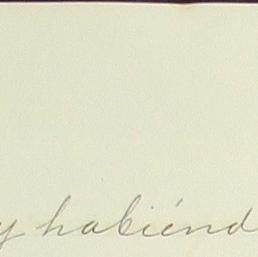 y habiénd